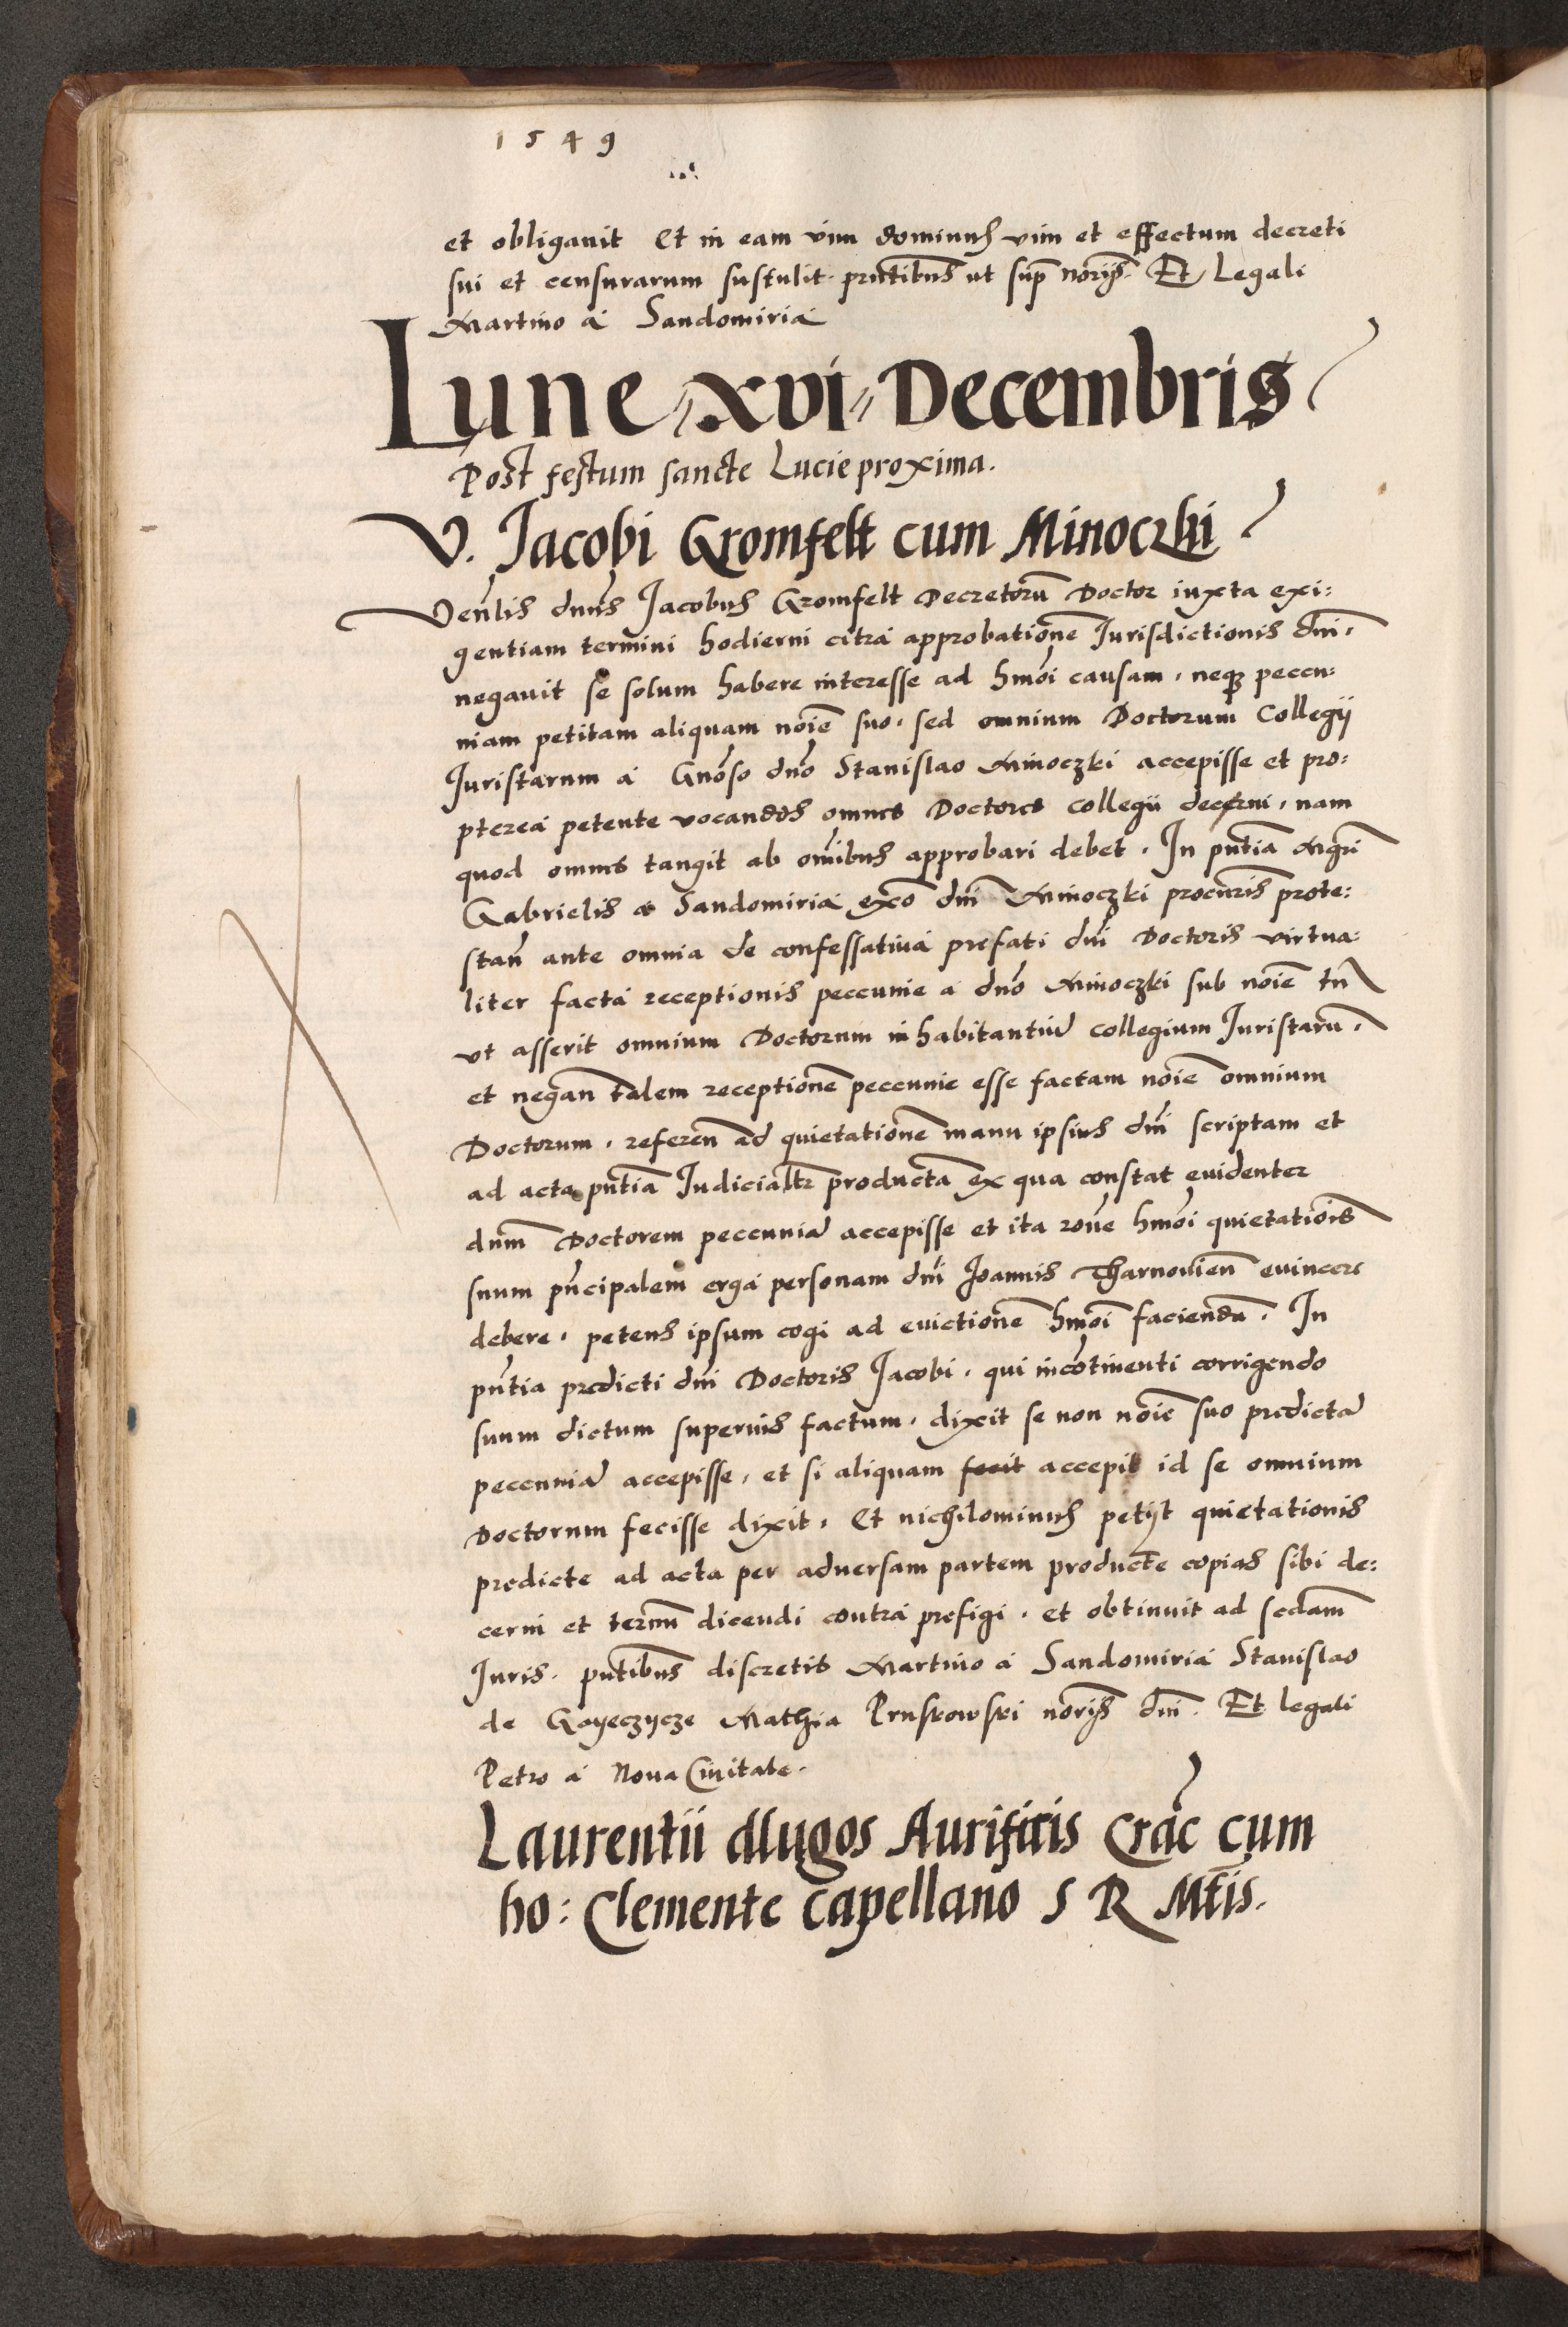 1549
et obligauit Et in eam vim dominus vim et effectum decreti
sui et censurarum sustulit. pntibus ut sup norijs. Et Legali
Martino a Sandomiria
Lune xvi Decembris
Post festum sancte Lucie proxima.
V. Jacobi Gromfelt cum Minoczki
Venlis dnus Jacobus Gromfelt Decretoru Doctor iuxta exi:
gentiam termini hodierni citra approbatione Jurisdictionis dni,
negauit se solum habere interesse ad hmoi causam, neq peccu:
niam petitam aliquam noie suo, sed omnium Doctorum Collegij
Juristarum a Gnoso dno Stanislao Minoczki accepisse et pro:
pterea petente vocandos omnes Doctores collegii decerni, nam
quod omnes tangit ab omibus approbari debet. In pntia Mgri
Gabrielis a Sandomiria exo dni Minoczki procuris prote:
stan ante omnia de confessatiua prefati dni Doctoris virtua:
liter facta receptionis peccunie a dno Minoczki sub noie tn
vt asserit omnium Doctorum inhabitantiu collegium Juristaru,
et negan talem receptione peccunie esse factam noie omnium
Doctorum, referen ad quietatione manu ipsius dni scriptam et
ad acta pntia Judicialtr producta ex qua constat euidenter
dnm Doctorem peccunia accepisse et ita rone hmoi quietatiois
suum pncipalem erga personam dni Joannis Tharnouien euincere
debere, petens ipsum cogi ad euictione hmoi facienda. In
pntia predicti dni Doctoris Jacobi, qui incotinenti corrigendo
suum dictum superius factum, dixit se non noie suo predicta
peccunia accepisse, et si aliquam fecit accepit id se omnium
Doctorum fecisse dixit, Et nichilominus petijt quietationis
predicte ad acta per aduersam partem producte copias sibi de:
cerni et termn dicendi contra prefigi, et obtinuit ad sedam
Juris. pntibus discretis Martino a Sandomiria Stanislao
de Goyeczycze Mathia Pruskowski norijs dni. Et legali
Petro a Noua Ciuitate.
Laurentii dlugos Aurificis Crac cum
ho: Clemente Capellano S R Mtis.